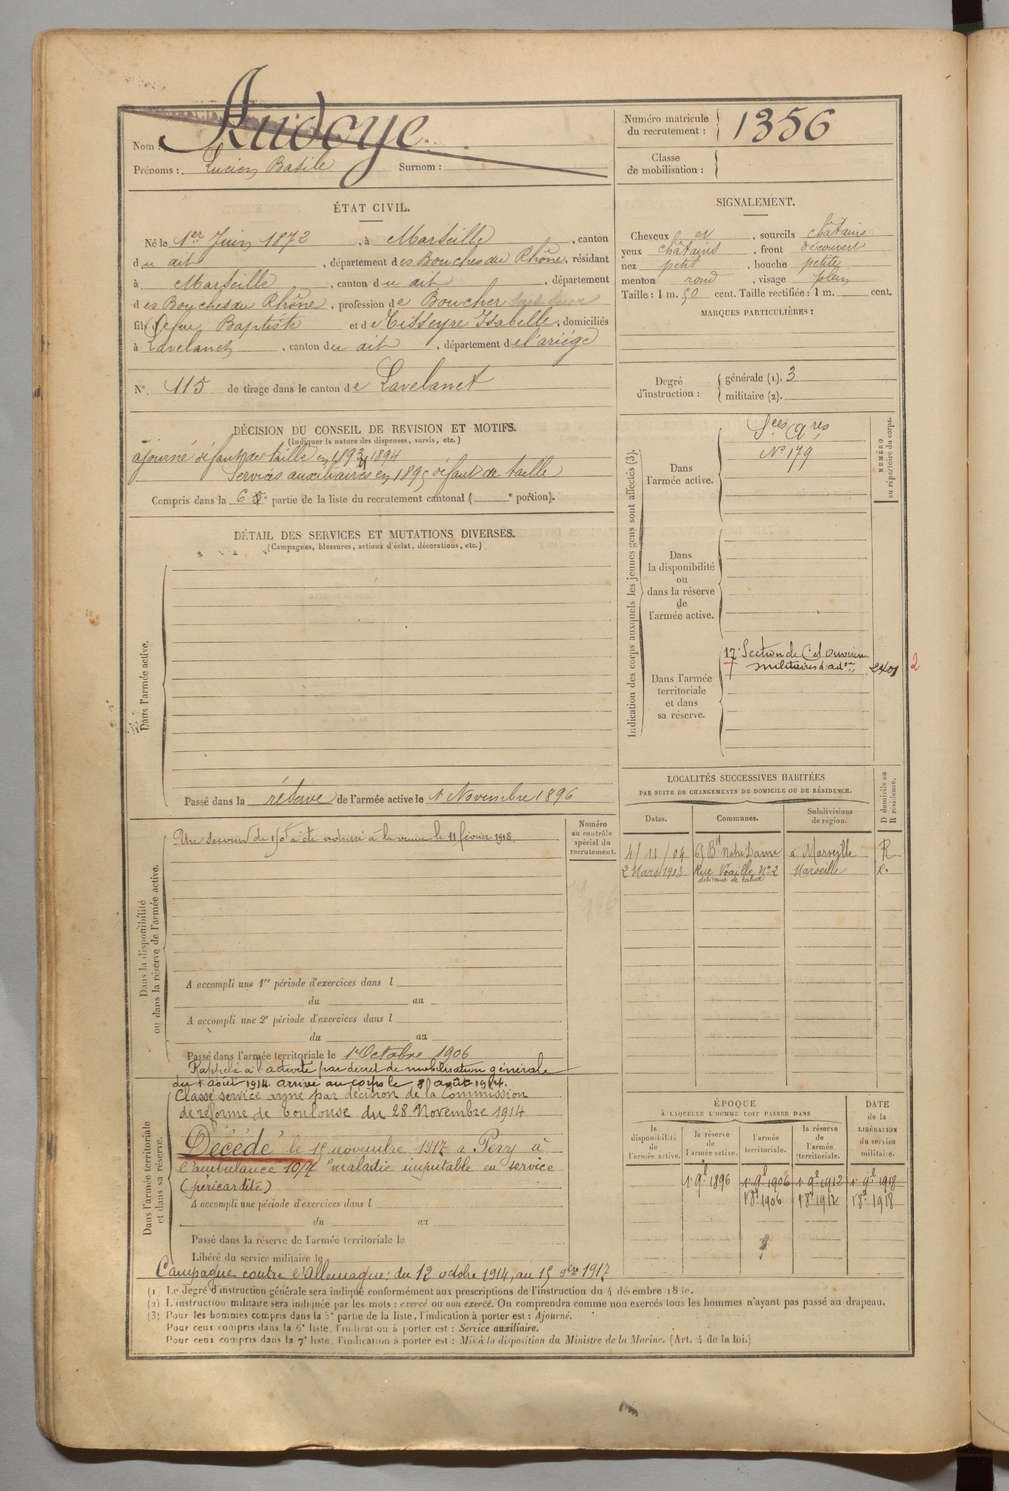 Nom : Audoye
Prénoms : Lucien Basile Surnom :
Numéro matricule du recrutement : 1356
Classe de mobilisation :
ÉTAT CIVIL.
Né le 1er Juin 1873, à Marseille, canton
du dit, département des Bouches du Rhône, résidant
à Marseille, canton du dit, département
des Bouches du Rhône, profession de Boucher
fils de feu Baptiste et de Tisseyre Isabelle, domiciliés
à Lavelanet, canton du dit, département de l'ariége
N° 115 de tirage dans le canton de Lavelanet
SIGNALEMENT.
Cheveux et sourcils châtains
yeux châtains, front découvert
nez petit, bouche petite
menton rond, visage plein
Taille : 1 m. 50 cent. Taille rectifiée : 1 m. cent.
MARQUES PARTICULIÈRES :
Degré d'instruction : générale (1). 3
militaire (2).
DÉCISION DU CONSEIL DE REVISION ET MOTIFS.
(Indiquer la nature des dispenses, sursis, etc.)
ajourné défaut de taille en 1893 et 1894
Services auxiliaires en 1895 défaut de taille
Compris dans la 6e partie de la liste du recrutement cantonal ( e portion).
DÉTAIL DES SERVICES ET MUTATIONS DIVERSES.
(Campagnes, blessures, actions d'éclat, décorations, etc.)
Dans l'armée active.
Passé dans la réserve de l'armée active le 1 Novembre 1896
Indication des corps auxquels les jeunes gens sont affectés (3).
NUMÉRO au répertoire du corps.
Dans l'armée active.
Sces Ares
N° 179
Dans la disponibilité ou dans la réserve de l'armée active.
Dans l'armée territoriale et dans sa réserve.
17e Section de C. et Ouvriers
militaires d'adon
2401 2
LOCALITÉS SUCCESSIVES HABITÉES
PAR SUITE DE CHANGEMENTS DE DOMICILE OU DE RÉSIDENCE.
Dates. Communes. Subdivisions de région. D domicile ou R résidence.
4/11/04 65 Bd Notre Dame à Marseille R
2 Mars 1913 Rue Vraille N° 2 Marseille R.
Dans la disponibilité ou dans la réserve de l'armée active.
Numéro au contrôle spécial du recrutement.
Un secours de 150f a été ordonné à la veuve le 11 février 1918
A accompli une 1re période d'exercices dans l
du au
A accompli une 2e période d'exercices dans l
du au
Passé dans l'armée territoriale le 1er Octobre 1906
Rappelé à l'activité par décret de mobilisation générale
du 1 août 1914 arrivé au corps le 8 août 1914.
Dans l'armée territoriale et dans sa réserve.
Classé service armé par décision de la Commission
de réforme de Toulouse du 28 Novembre 1914
Décédé le 15 novembre 1917 à Pevy à
l'ambulance 10/7 "maladie imputable en service
(péricardite)
A accompli une période d'exercices dans l
du au
Passé dans la réserve de l'armée territoriale le
Libéré du service militaire le
Campagne contre l'Allemagne : du 12 octobre 1914, au 15 9bre 1917
ÉPOQUE
À LAQUELLE L'HOMME DOIT PASSER DANS
la disponibilité de l'armée active. la réserve de l'armée active. l'armée territoriale. la réserve de l'armée territoriale.
DATE de la LIBÉRATION du service militaire.
1 9e 1896 1 9e 1906 1 9e 1912 1 9e 1918
1 8e 1906 1 8e 1912 1 8e 1918
(1) Le degré d'instruction générale sera indiqué conformément aux prescriptions de l'instruction du 4 décembre
(2) L'instruction militaire sera indiquée par les mots : exercé ou non exercé. On comprendra comme non exercés tous les hommes n'ayant pas passé au drapeau.
(3) Pour les hommes compris dans la 5e partie de la liste, l'indication à porter est : Ajourné.
Pour ceux compris dans la 6e liste, l'indication à porter est : Service auxiliaire.
Pour ceux compris dans la 7e liste, l'indication à porter est : Mis à la disposition du Ministre de la Marine. (Art. 4 de la loi.)